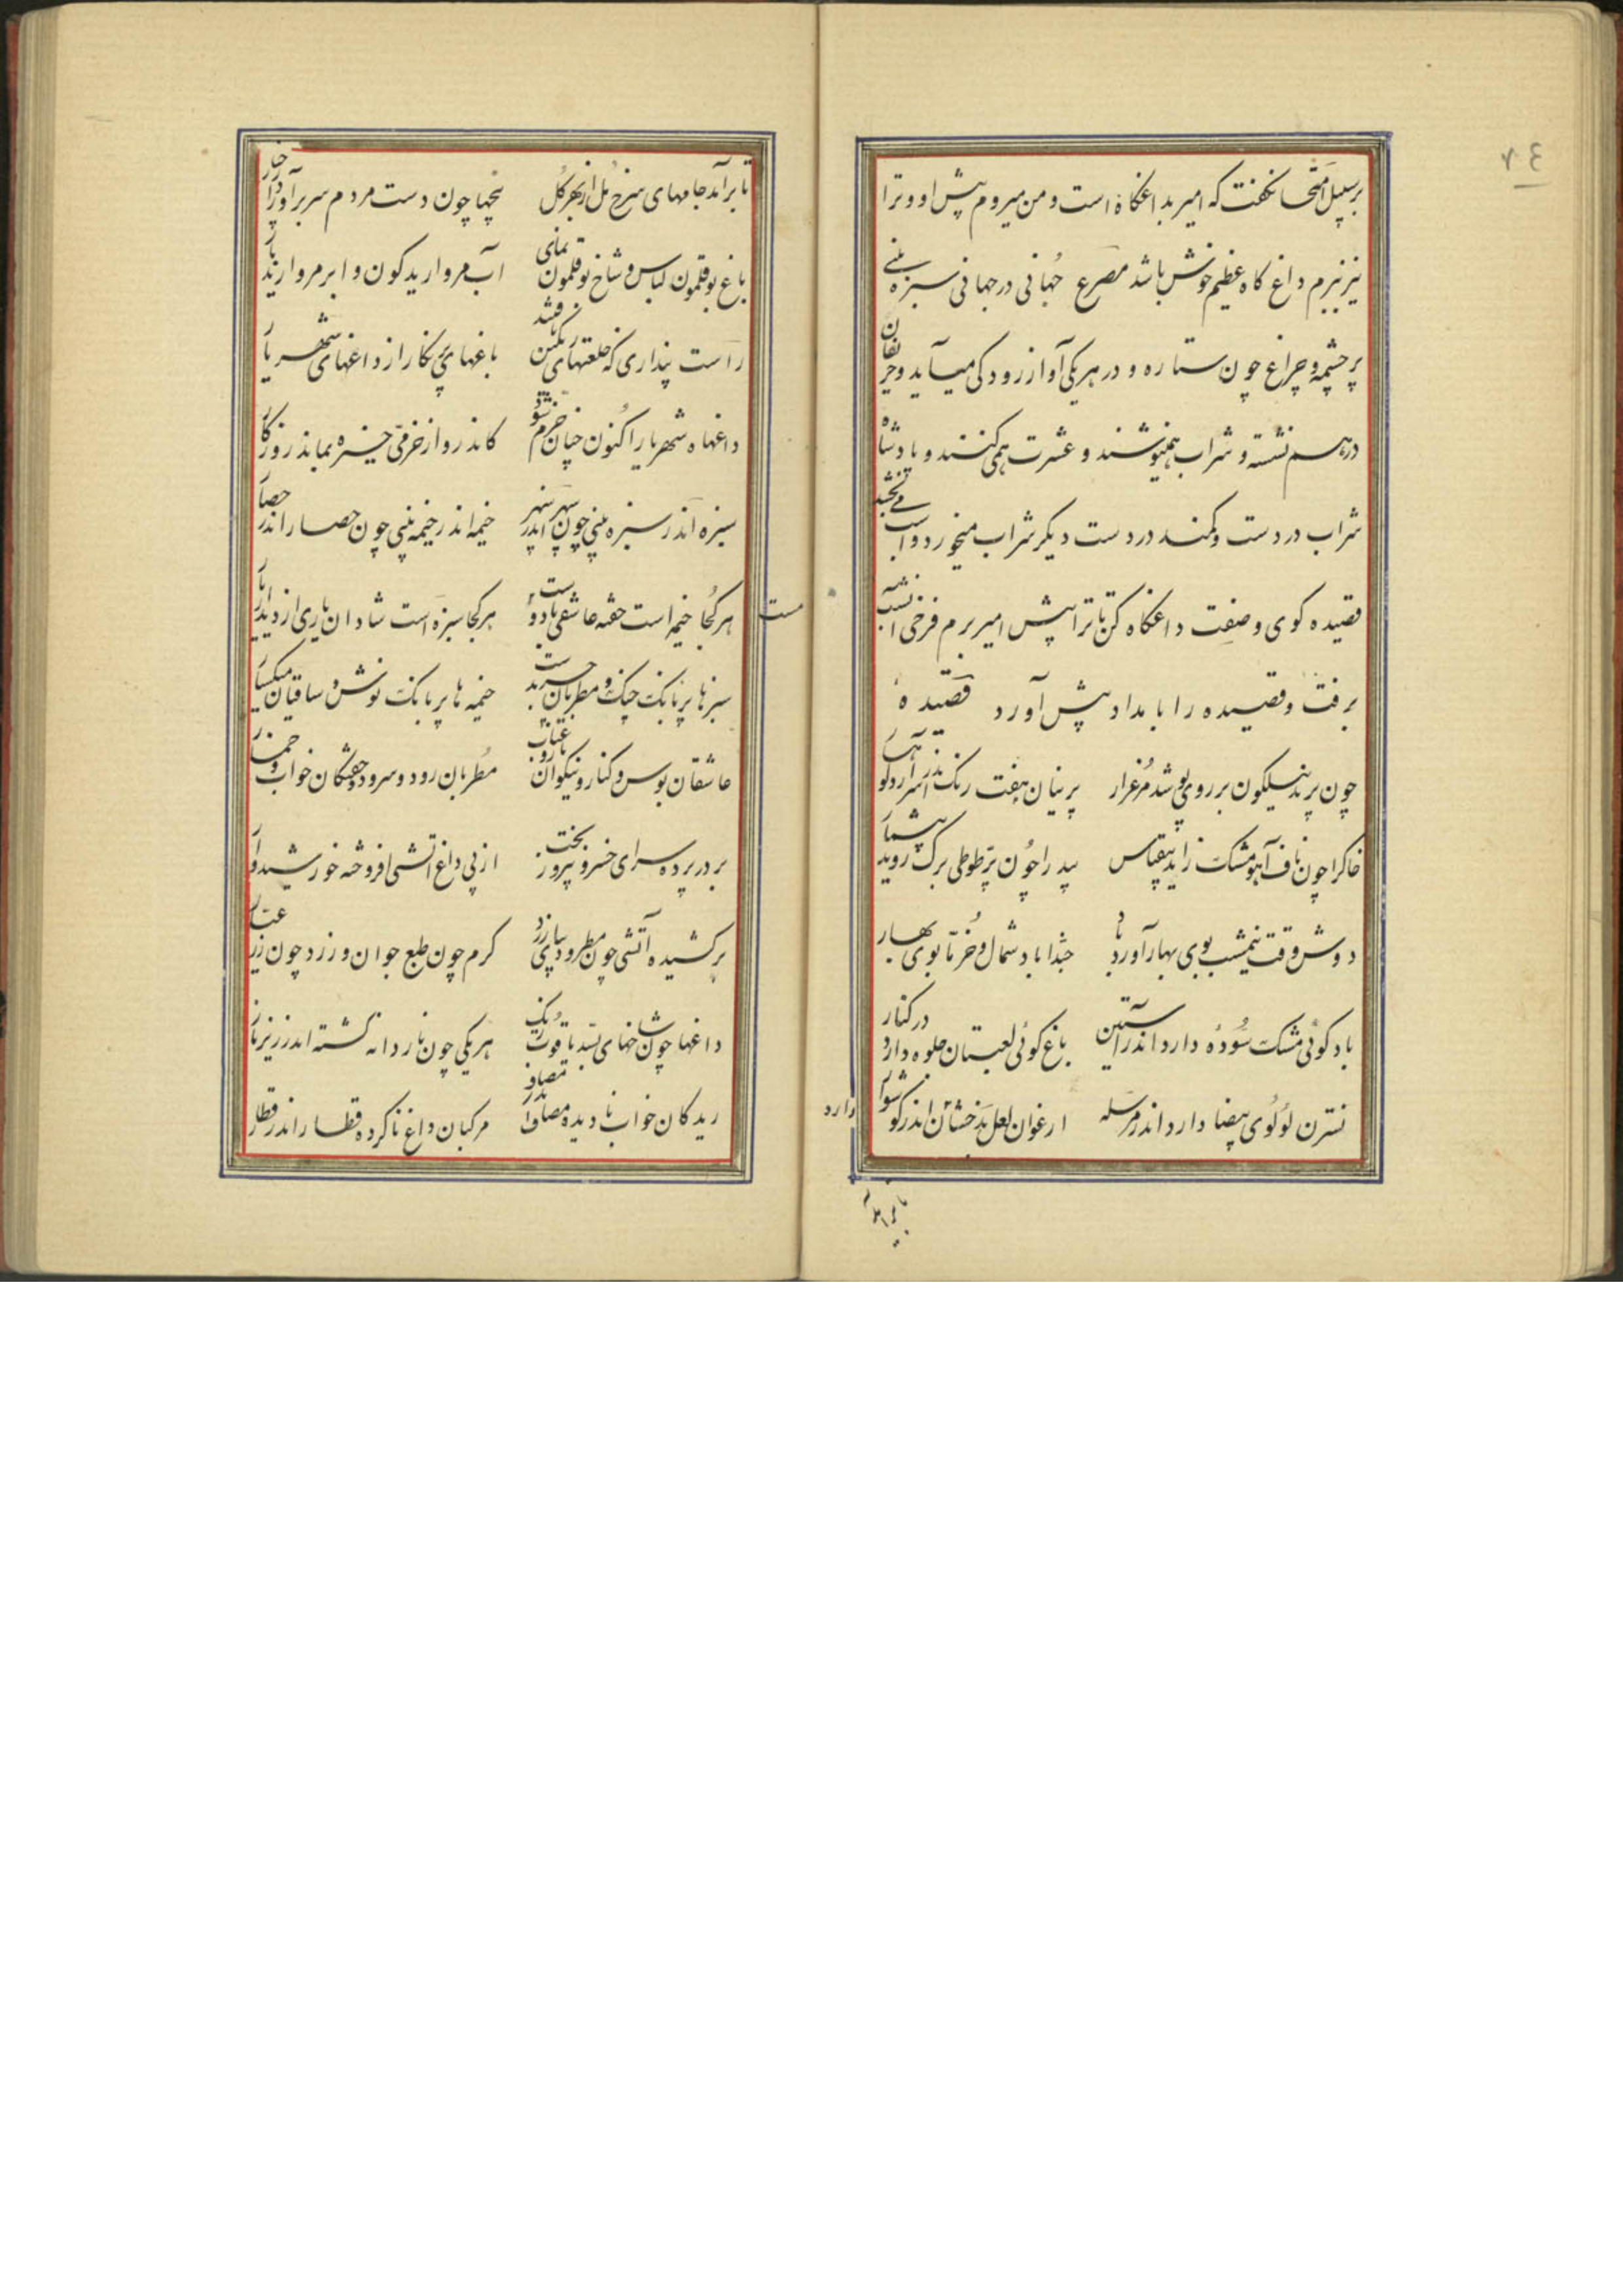 ٧٤
برسبیل امتحان گفت که امیر بداغگاه است و من میروم پیش او و ترا
نیز ببرم داغ گاه عظیم خوش باشد مصرع جهانی در جهانی سبزه بینی
پر خیمه و چراغ چون ستاره و در هریکی آواز رود کی میآید و حریفان
درهم نشسته و شراب همینوشند و عشرت همی کنند و پادشاه
شراب در دست و کمند در دست دیگر شراب میخورد و اسب می بخشد
قصیده کوی وصفت داغگاه کن تا ترا پیش امیر برم فرخی آنشب
برفت و قصیده را بامداد پیش آورد قصیده
چون پرند نیلگون بر روی پوشد مرغزار پرنیان هفت رنگ اندر سر آرد کوهسار
خاک را چون ناف آهو مشک زاید بیقیاس بید را چون پر طوطی برگ روید بیشمار
دوش وقت نیمشب بوی بهار آورد باد حبذا باد شمال و خرما بوی بهار
باد گوئی مشک سوده دارد اندر آستین باغ گوئی لعبتان جلوه دارد در کنار
نسترن لؤلؤی بیضا دارد اندر مرسله ارغوان لعل بدخشان دارد اندر گوشوار
تا برآمد جامهای سرخ مل از بهر گل پنجها چون دست مردم سر برآورد از چنار
باغ بوقلمون لباس و شاخ بوقلمون نمای آب مروارید گون و ابر مروارید بار
راست پنداری که خلعتهای رنگین یافتند باغهای پر نگار از داغهای شهریار
داغهاه شهریار اکنون چنان خرم شود کاندرو از خرمی خیره بماند روزگار
سبزه اندر سبزه بینی چون سپهر اندر سپهر خیمه اندر خیمه بینی چون حصار اندر حصار
هر کجا خیمه است خفته عاشقی با دوست مست هر کجا سبزه است شادان یاری از دیدار یار
سبزها پر بانک چنک و مطربان چرب دست خیمه ها پر بانک نوش و ساقیان میکسار
عاشقان بوس و کنار و نیکوان ناز و عتاب مطربان رود و سرود و خفتگان خواب و خمار
بر در پرده سرای خسرو پیروز بخت از پی داغ آتشی افروخته خورشیدوار
برکشیده آتشی چون مطرد دیبای زرد گرم چون طبع جوان و زرد چون زر عیار
داغها چون شاخهای بسد یاقوت رنک هر یکی چون نار دانه گشته اندر زیر نار
ریدکان خواب نادیده مصاف اندر مصاف مرکبان داغ ناکرده قطار اندر قطار